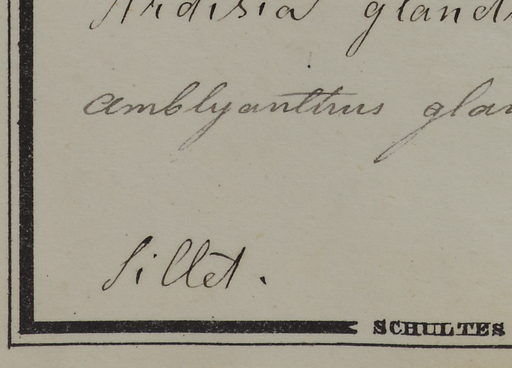 Ardisia gland
Amblyanthus glan
Sillet.
SCHULTES